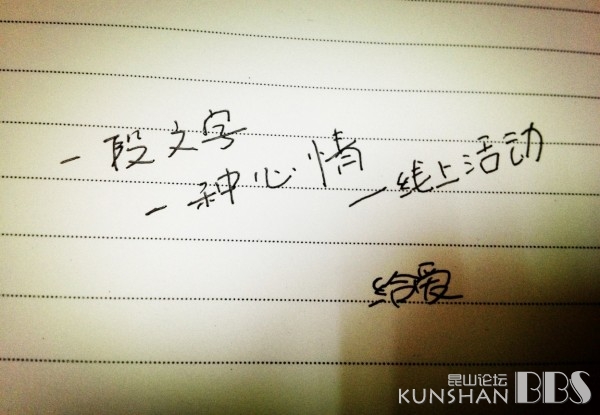 一段文字
一种心情
—线上活动
给爱
昆山论坛
KUNSHAN BBS